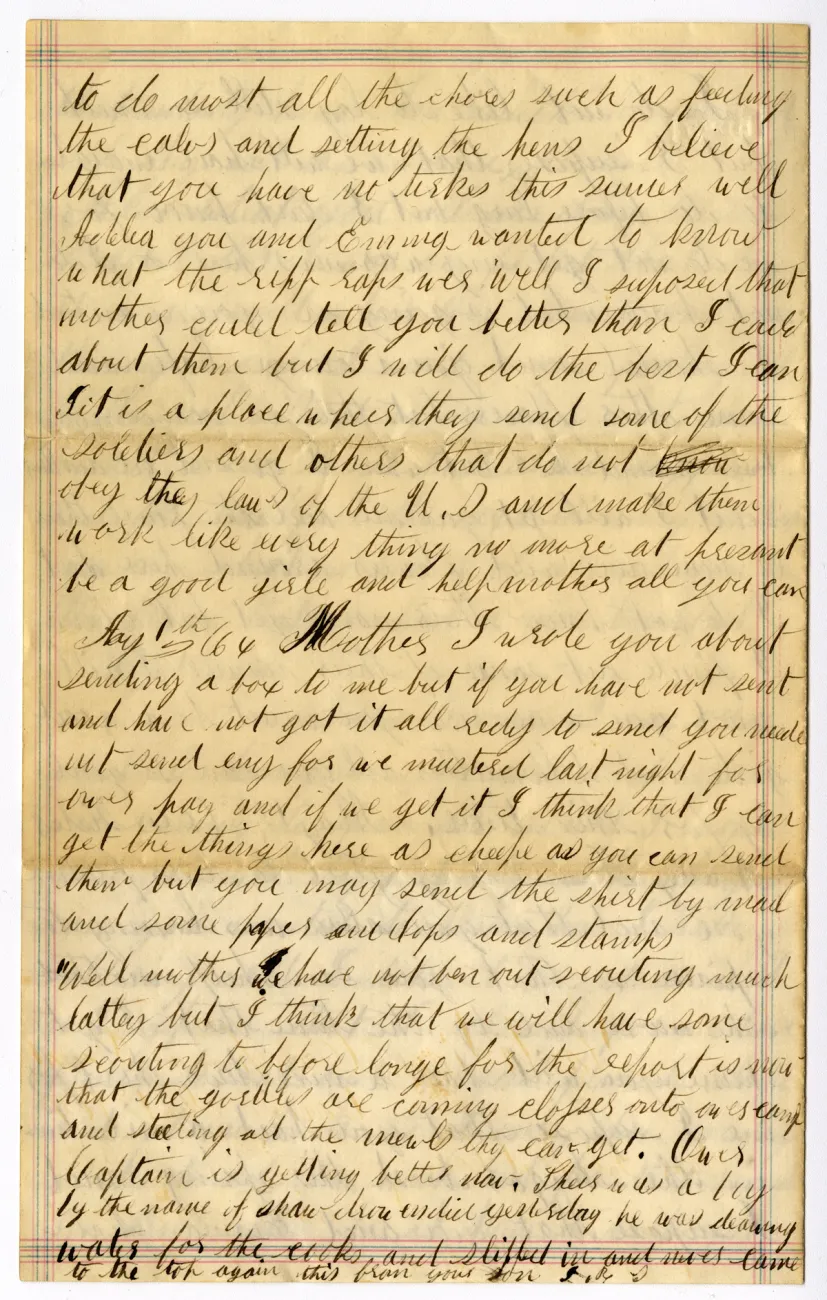 to do most all the chores such as feeding
the calvs and setting the hens I believe
that you have no terkes this sumer well
Addia you and Emma wanted to know
what the ripp raps wer well I suposed that
mother could tell you better than I could
about them but I will do the best I can
it is a place wheer they send some of the
soldiers and others that do not know
obey they laws of the U.S and make them
work like every thing no more at presant
be a good girle and help mother all you can
1th /64 Mother I wrote you about
sending a box to me but if you have not sent
and have not got it all redy to send you neede
not send eny for we mustered last night for
ower pay and if we get it I think that I can
get the things here as cheepe as you can send
them but you may send the shirt by mail
and some paper envelops and stamps
"Well mother We have not ben out scouting much
lattey but I think that we will have some
scouting to before longe for the report is now
that the gorilles are coming closser onto ower camp
and steeling all the mewls thy can get. Ower
Captain is getting better now. Theer was a boy
by the name of shaw drowended yesterday he was drawing
water for the cooks and slipped in and never came
to the top again this from your son